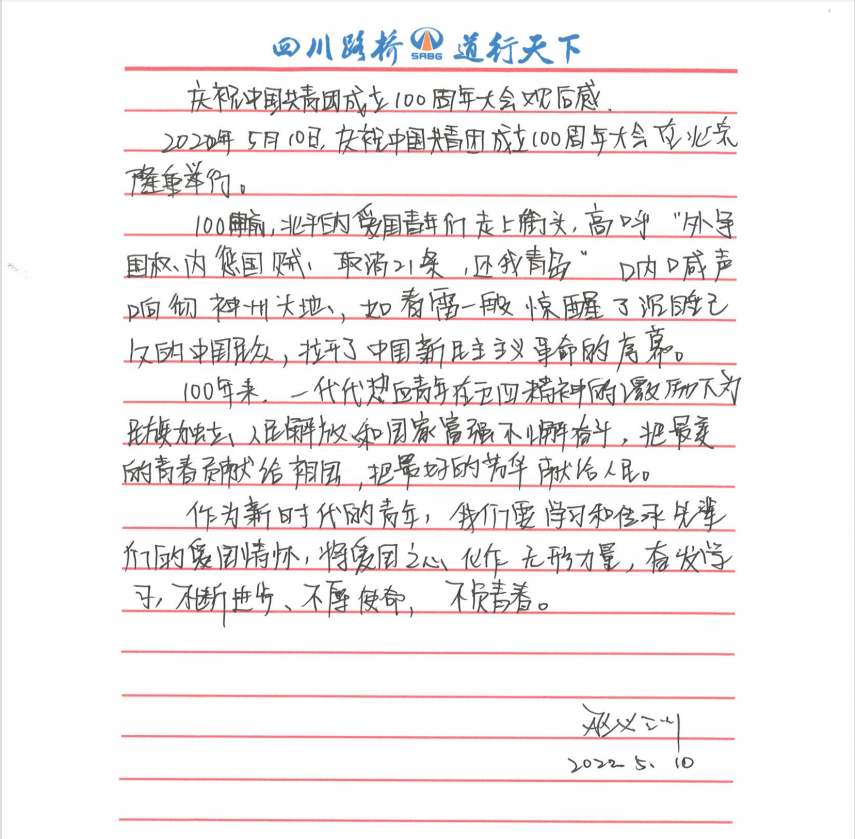 四川路桥 SRBG 道行天下
庆祝中国共青团成立100周年大会观后感.
2022年5月10日,庆祝中国共青团成立100周年大会在北京
隆重举行。
100年前,北平的爱国青年们走上街头,高呼“外争
国权、内惩国贼、取消21条,还我青岛”呐喊声
响彻神州大地,如春雷一般惊醒了沉睡已
久的中国民众,拉开了中国新民主主义革命的序幕。
100年来.一代代热血青年在五四精神的激励下为
民族独立、人民解放和国家富强不懈奋斗,把最美
的青春贡献给祖国,把最好的芳华献给人民。
作为新时代的青年,我们要学习和传承先辈
们的爱国情怀,将爱国之心化作无形力量,奋发学
习,不断进步、不辱使命,不负青春。
2022.5.10